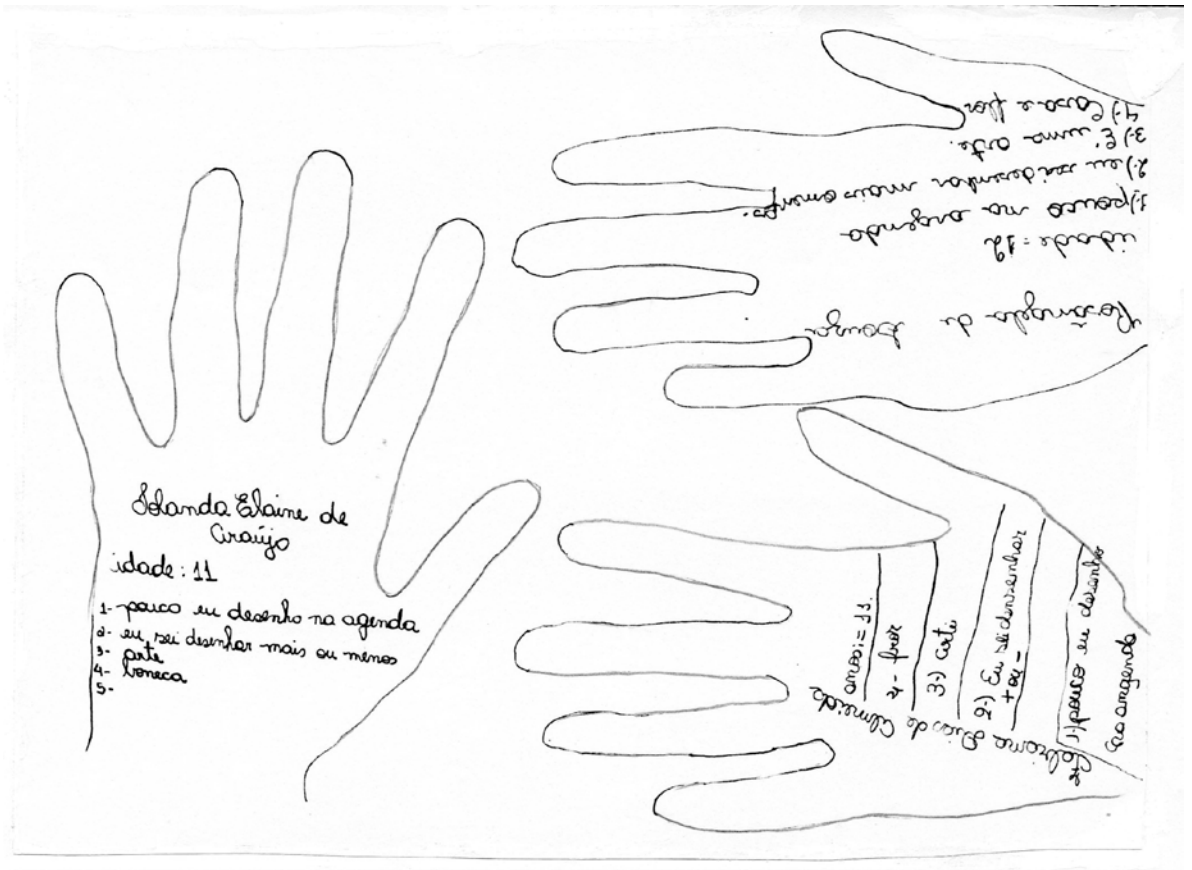 Iolanda Elaine de
Araújo
idade: 11
1- pouco eu desenho na agenda
2- eu sei desenhar mais ou menos
3- arte
4- boneca
5-
Rosângela de Souza
idade = 12
1-) pouco na argenda
2-) eu sei desenhar mais omenos.
3-) E' uma arte.
4-) Casa e flor
Fabiana Dias de Almeida
anos: = 11.
1-) pouco eu desenho
na argenda
2-) Eu sei densenhar
+ ou -
3-) arte
4- flor